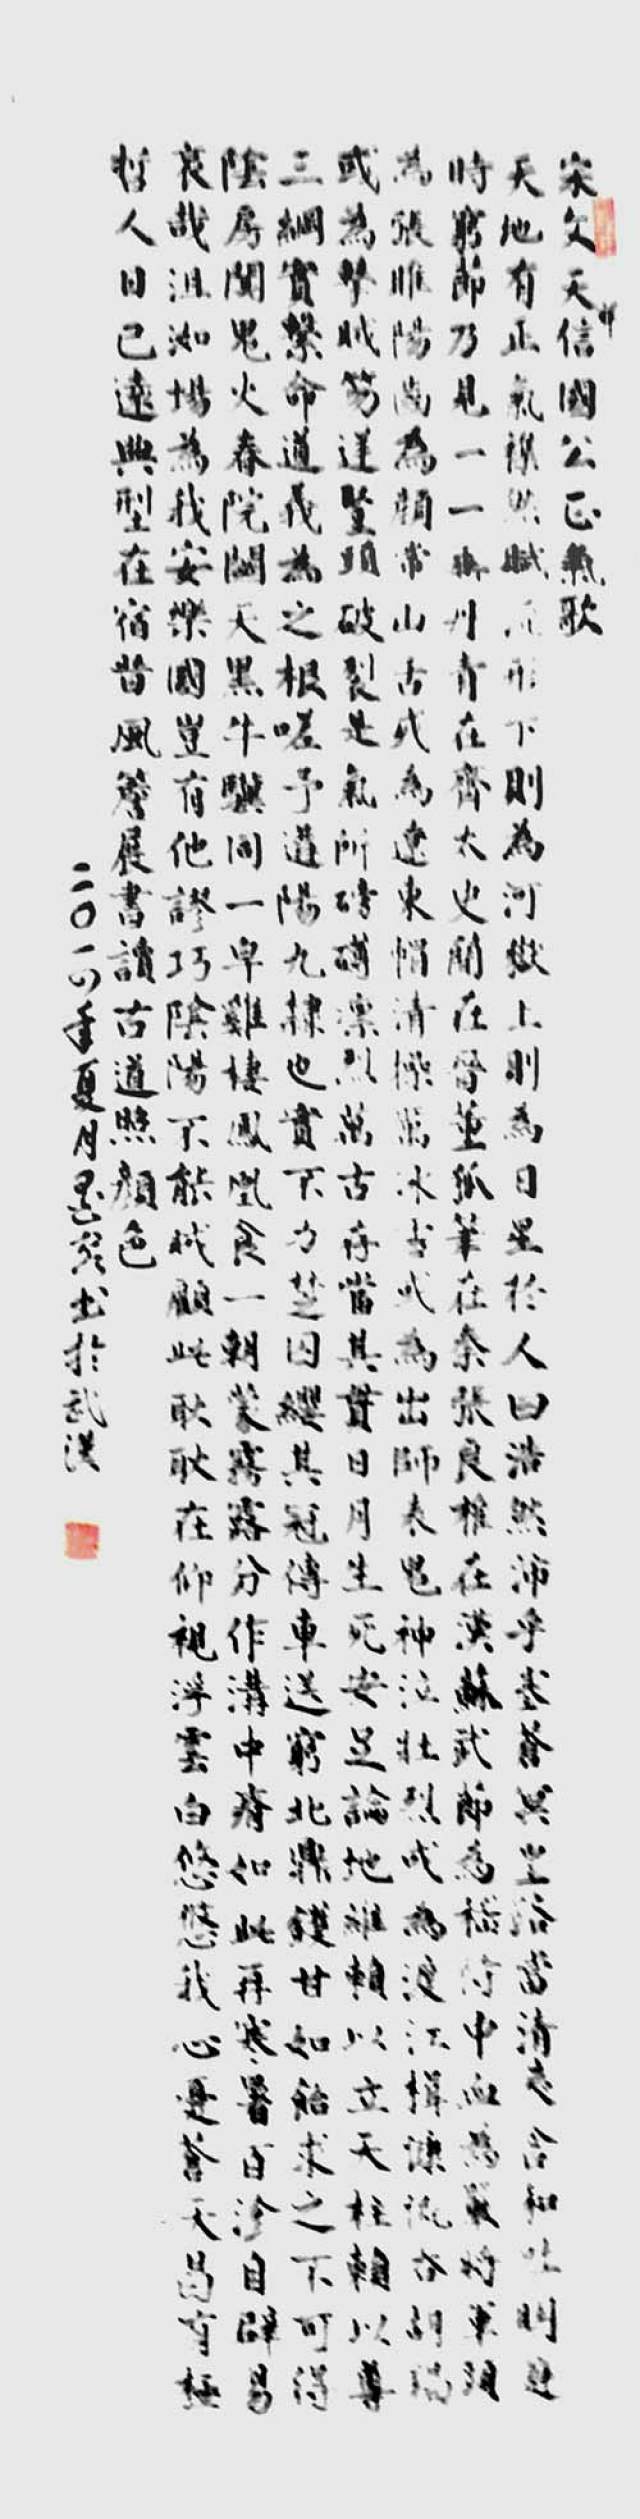 宋文天信國公正氣歌
祥
天地有正氣雜然賦流形下則為河嶽上則為日星於人曰浩然沛乎塞蒼冥皇路當清夷含和吐明庭
時窮節乃見一一垂丹青在齊太史簡在晉董狐筆在秦張良椎在漢蘇武節為嵇侍中血為嚴將軍頭
為張睢陽齒為顏常山舌或為遼東帽清操厲冰雪或為出師表鬼神泣壯烈或為渡江楫慷慨吞胡羯
或為擊賊笏逆豎頭破裂是氣所磅礴凜烈萬古存當其貫日月生死安足論地維賴以立天柱賴以尊
三綱實繫命道義為之根嗟予遘陽九隸也實不力楚囚纓其冠傳車送窮北鼎鑊甘如飴求之不可得
陰房闃鬼火春院閟天黑牛驥同一皁雞棲鳳凰食一朝蒙霧露分作溝中瘠如此再寒暑百沴自辟易
哀哉沮洳場為我安樂國豈有他謬巧陰陽不能賊顧此耿耿在仰視浮雲白悠悠我心憂蒼天曷有極
哲人日已遠典型在宿昔風簷展書讀古道照顏色
二〇一四年夏月 書於武漢